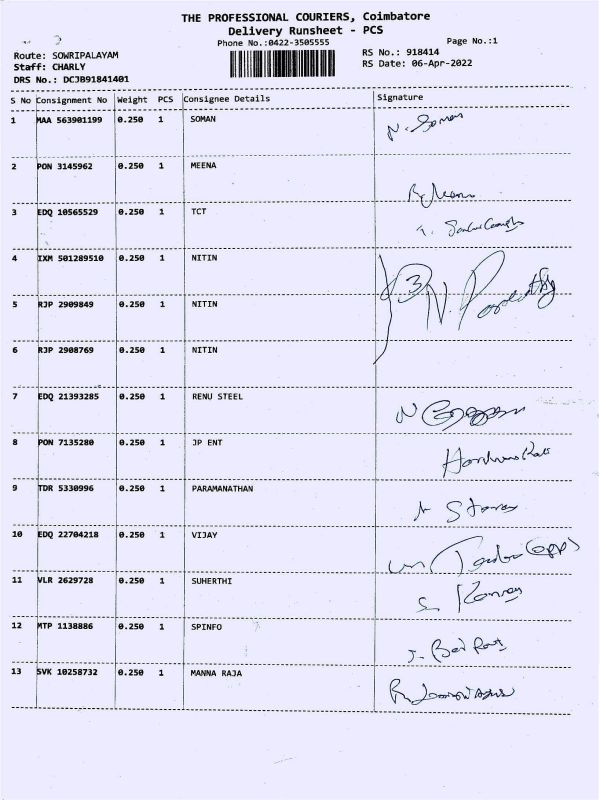 THE PROFESSIONAL COURIERS, Coimbatore
Delivery Runsheet - PCS
Phone No.:0422-3505555
Page No.:1
Route: SOWRIPALAYAM
RS No.: 918414
Staff: CHARLY
RS Date: 06-Apr-2022
DRS No.: DCJB91841401
S No Consignment No Weight PCS Consignee Details Signature
1 MAA 563901199 0.250 1 SOMAN N. Soman
2 PON 3145962 0.250 1 MEENA
3 EDQ 10565529 0.250 1 TCT
4 IXM 501289510 0.250 1 NITIN
5 RJP 2909849 0.250 1 NITIN
6 RJP 2908769 0.250 1 NITIN
7 EDQ 21393285 0.250 1 RENU STEEL
8 PON 7135280 0.250 1 JP ENT
9 TDR 5330996 0.250 1 PARAMANATHAN
10 EDQ 22704218 0.250 1 VIJAY
11 VLR 2629728 0.250 1 SUHERTHI
12 MTP 1138886 0.250 1 SPINFO
13 SVK 10258732 0.250 1 MANNA RAJA